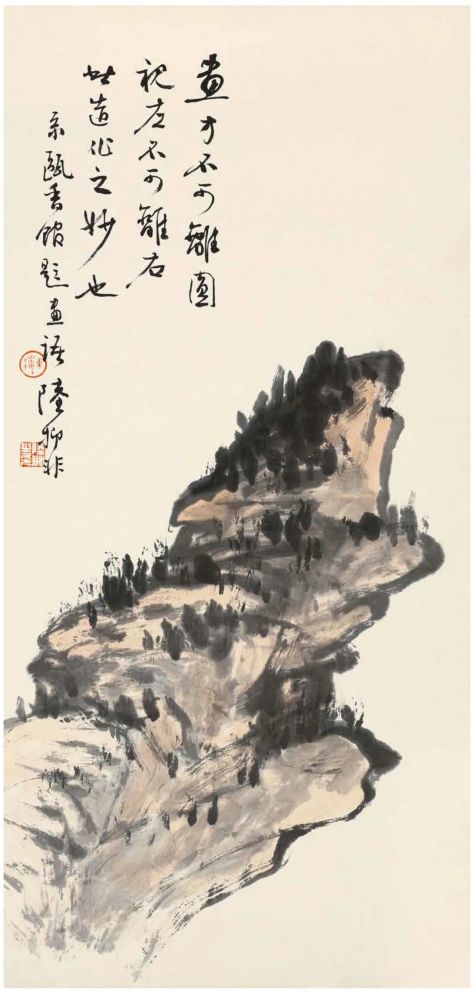 畫方不可離圓
視左不可離右
此造化之妙也
宗甌香館題畫語 陸抑非